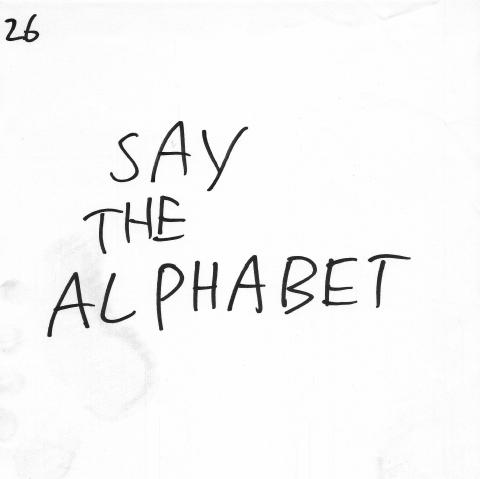 26
SAY
THE
ALPHABET